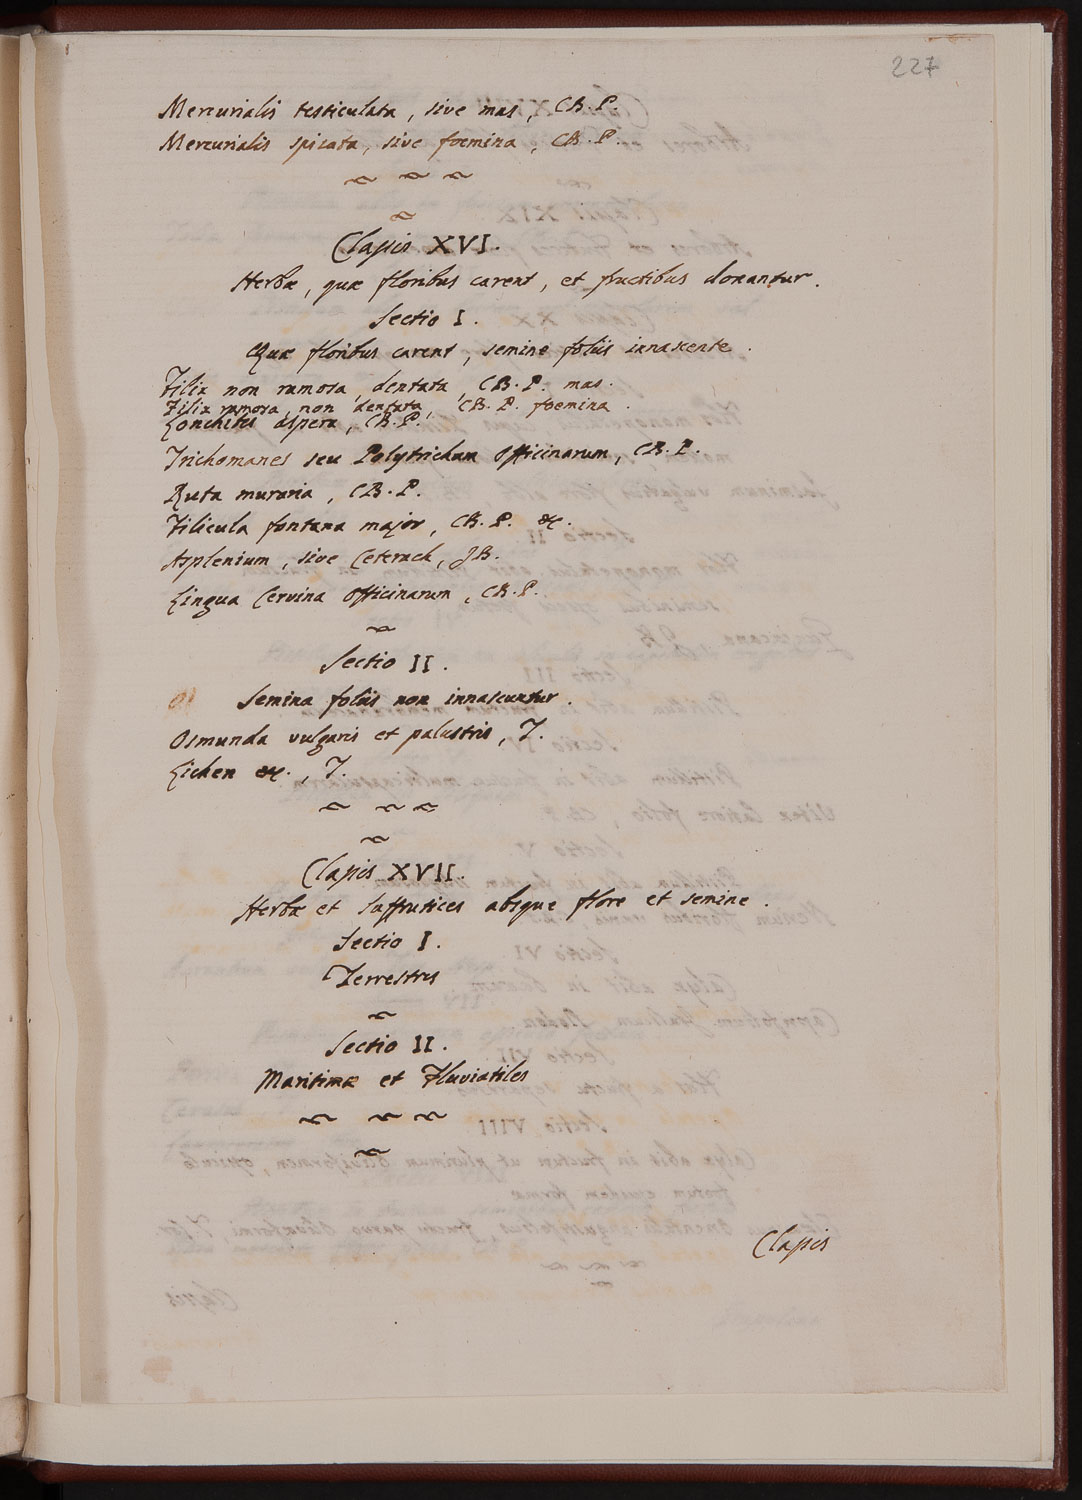 227
Mercurialis testiculata, sive mas, CB. P.
Mercurialis spicata, sive foemina, CB. P.
Classis XVI.
Herbæ, quæ floribus carent, et fructibus donantur.
Sectio I.
Quæ floribus carent, semine foliis innascente.
Filix non ramosa, dentata, CB. P. mas.
Filix ramosa, non dentata, CB. P. foemina.
Lonchitis aspera, CB. P.
Trichomanes seu Polytrichum officinarum, CB. P.
Ruta muraria, CB. P.
Filicula fontana major, CB. P. &c.
Asplenium, sive Ceterach, JB.
Lingua Cervina officinarum, CB. P.
Sectio II.
Semina foliis non innascuntur.
Osmunda vulgaris et palustris, T.
Lichen &c., T.
Classis XVII.
Herbæ et Suffrutices absque flore et semine.
Sectio I.
Terrestres
Sectio II.
Maritimæ et Fluviatiles
Classis